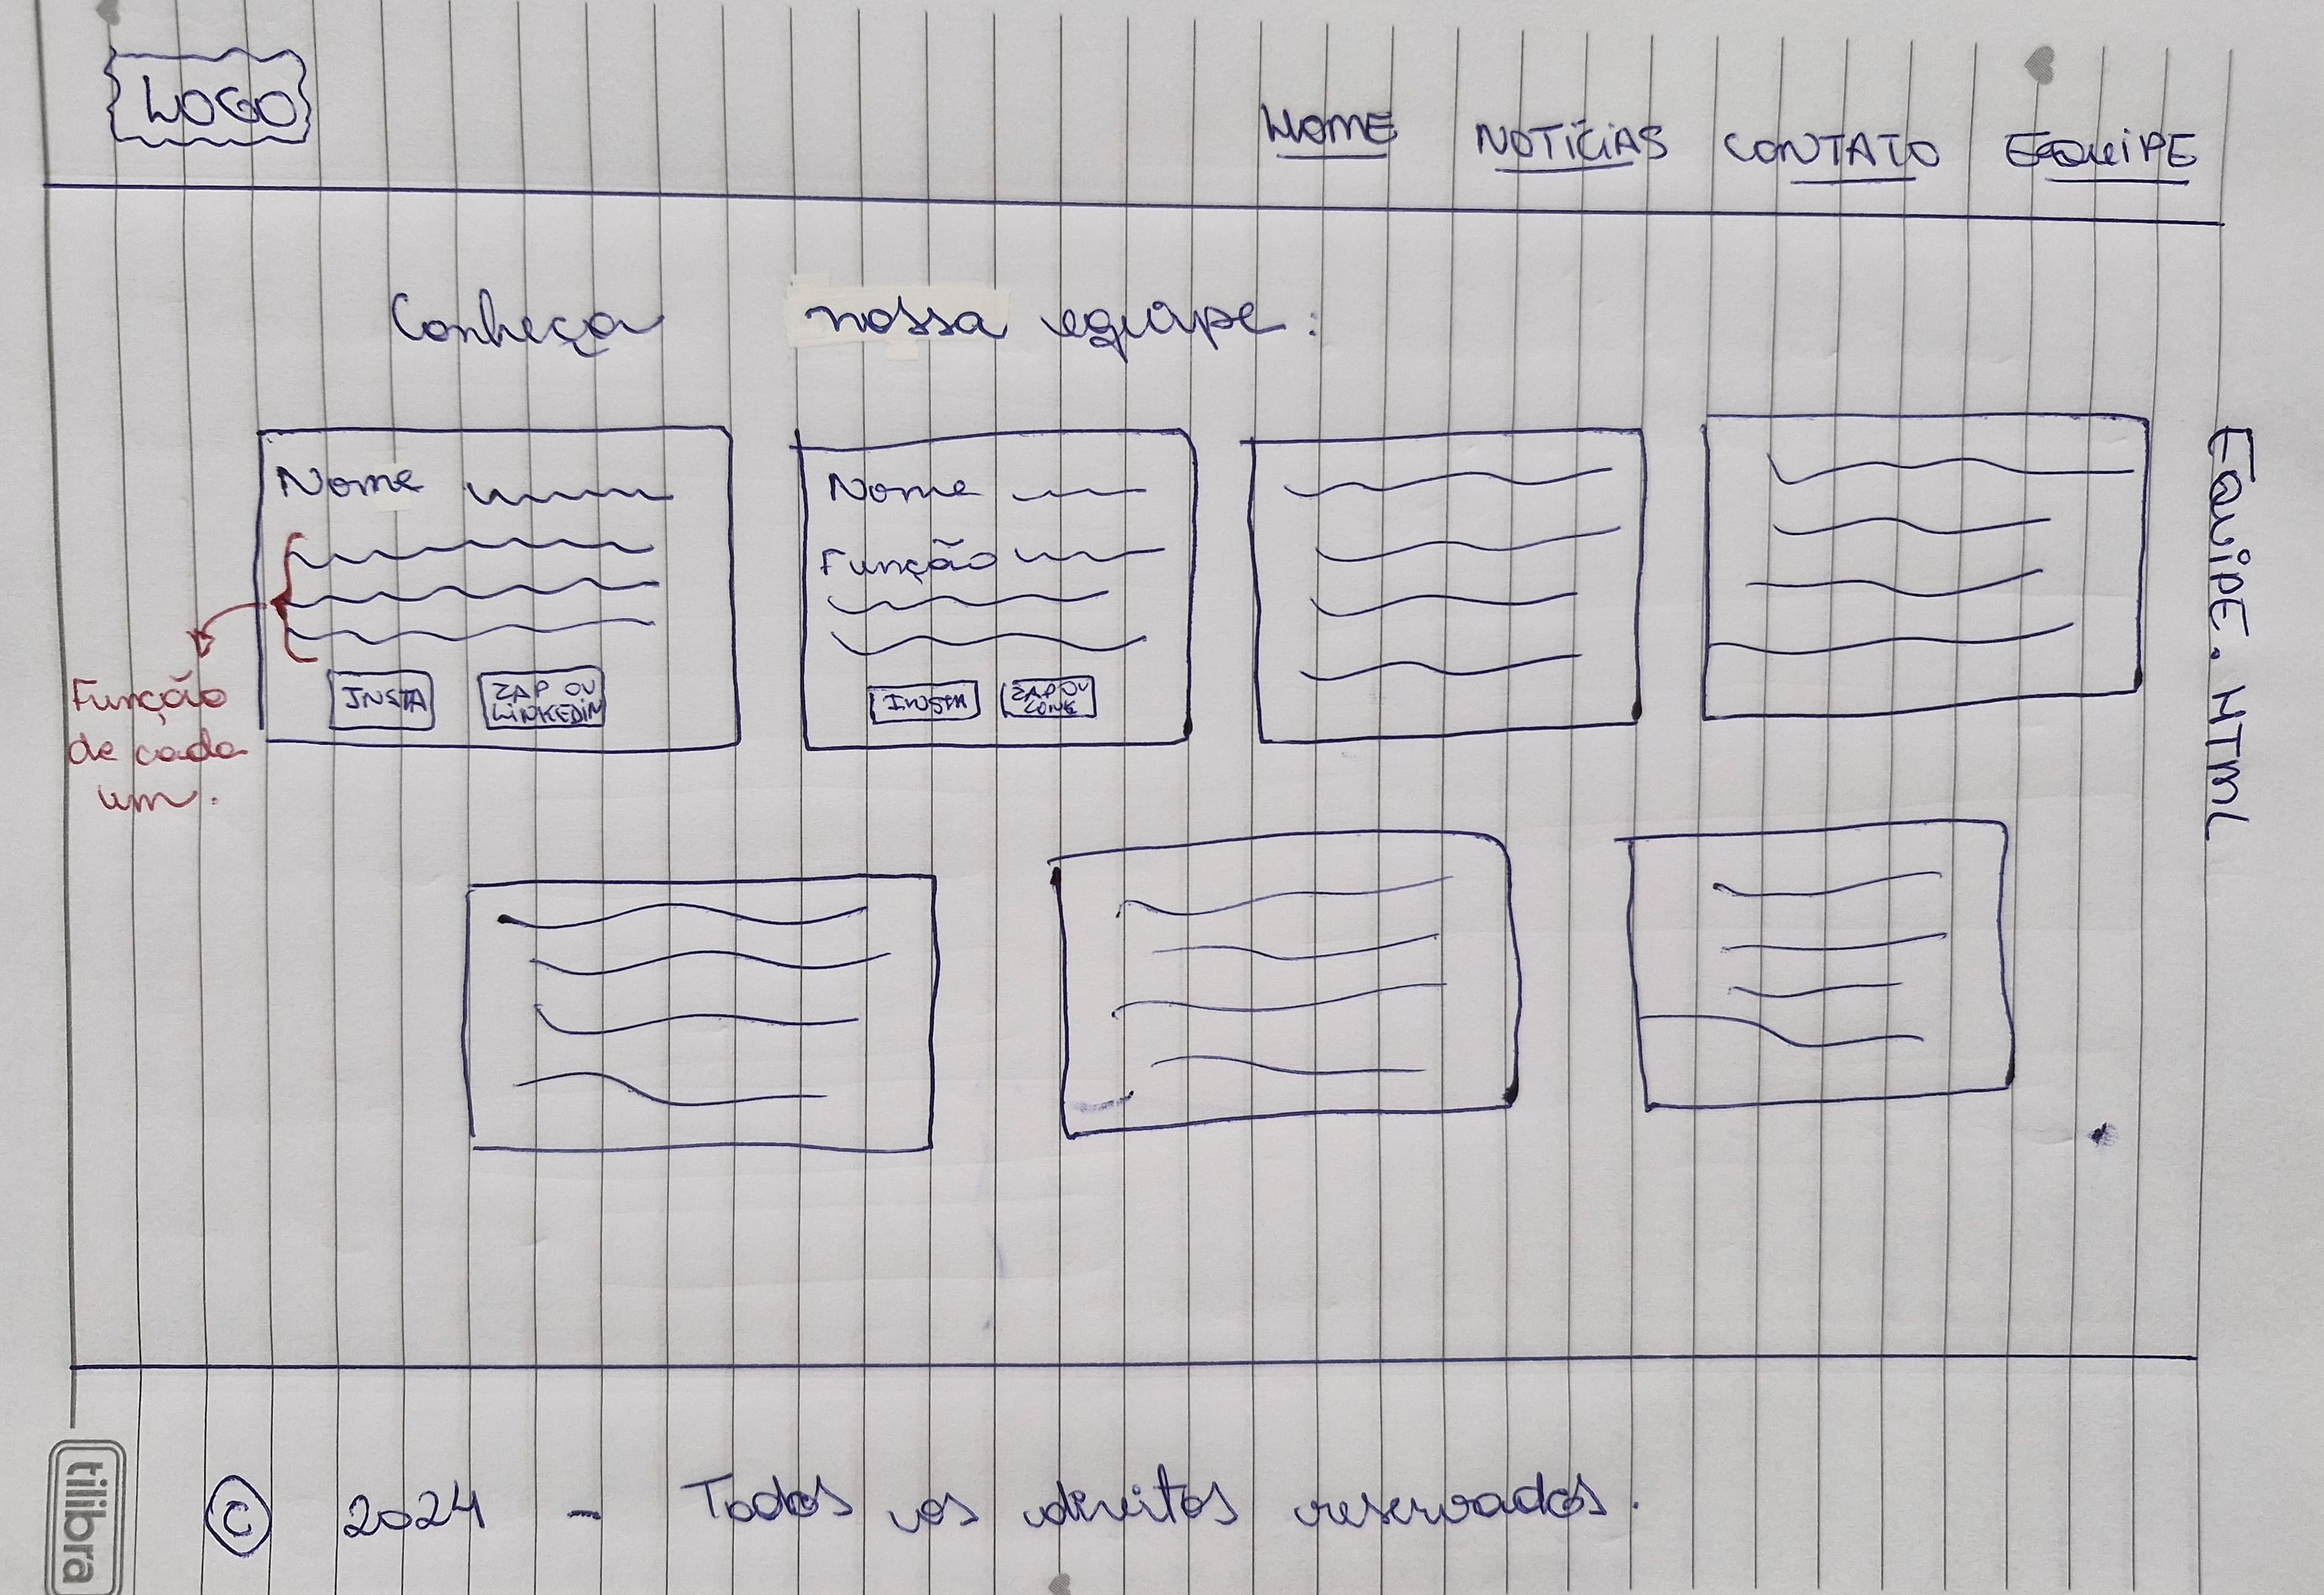 LOGO
HOME NOTÍCIAS CONTATO EQUIPE
Conheça nossa equipe:
Nome
INSTA
ZAP OU
LINKEDIN
Nome
Função
INSTA
ZAP OU
Função
de cada
um.
EQUIPE.HTML
© 2024 - Todos os direitos reservados.
tilibra